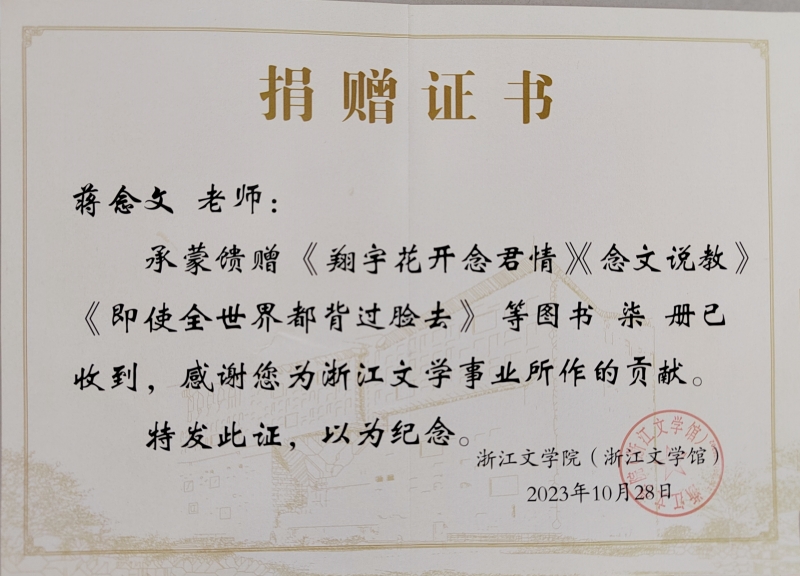 捐赠证书
蒋念文 老师：
承蒙馈赠《翔宇花开念君情》《念文说教》
《即使全世界都背过脸去》等图书 柒 册已
收到，感谢您为浙江文学事业所作的贡献。
特发此证，以为纪念。
浙江文学院（浙江文学馆）
2023年10月28日